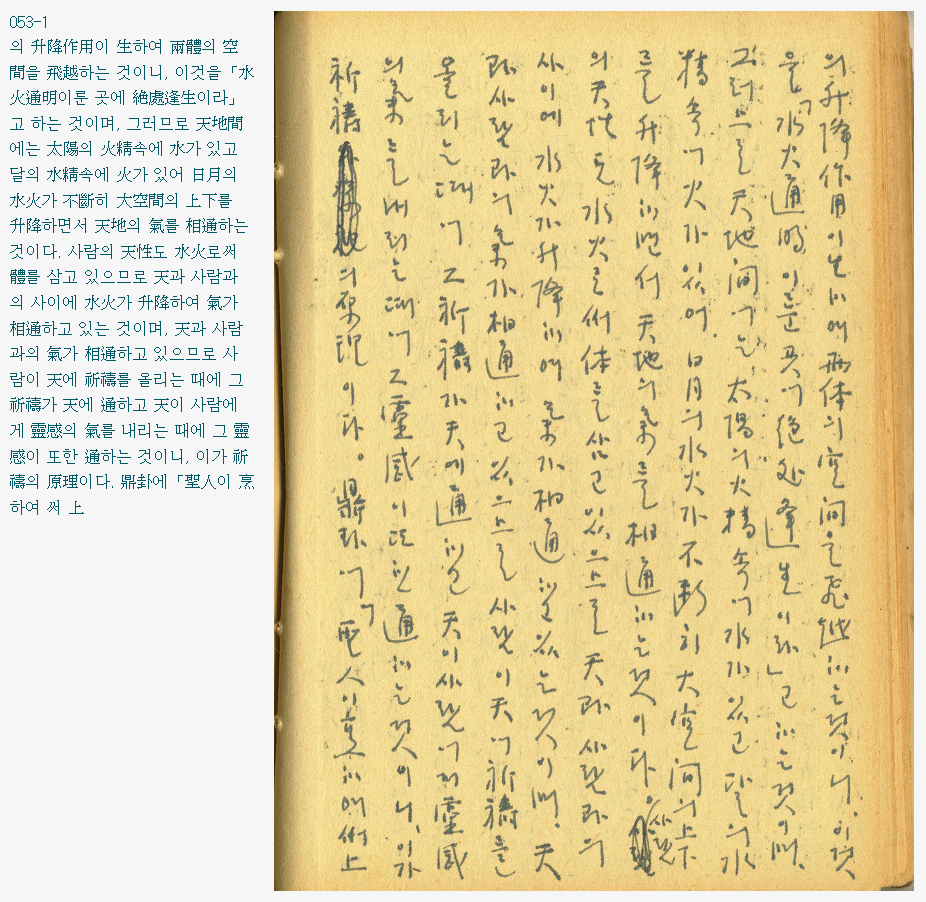 053-1
의 升降作用이 生하여 兩體의 空
間을 飛越하는 것이니, 이것을「水
火通明이룬 곳에 絶處逢生이라」
고 하는 것이며, 그러므로 天地間
에는 太陽의 火精속에 水가 있고
달의 水精속에 火가 있어 日月의
水火가 不斷히 大空間의 上下를
升降하면서 天地의 氣를 相通하는
것이다. 사람의 天性도 水火로써
體를 삼고 있으므로 天과 사람과
의 사이에 水火가 升降하여 氣가
相通하고 있는 것이며, 天과 사람
과의 氣가 相通하고 있으므로 사
람이 天에 祈禱를 올리는 때에 그
祈禱가 天에 通하고 天이 사람에
게 靈感의 氣를 내리는 때에 그 靈
感이 또한 通하는 것이니, 이가 祈
禱의 原理이다. 鼎卦에「聖人이 烹
하여 써 上
의升降作用이生하여 兩体의空间을飛越하는것이니, 이것
을「水火通明이룬곳에 絶処逢生이라」고하는것이며,
그러므로 天地间에는 太陽의火精속에水가있고 달의水
精속에火가있어, 日月의水火가不断히大空间의上下
를升降하면서 天地의氣를相通하는것이다。사람
의天性도水火로써体를삼고있으므로 天과 사람과의
사이에 水火가升降하여 氣가相通하고있는것이며, 天
과사람과의氣가相通하고있으므로 사람이天에祈禱를
올리는때에 그祈禱가天에通하고 天이사람에게靈感
의氣를내리는때에 그靈感이또한通하는것이니, 이가
祈禱의原理이다。鼎卦에「聖人이烹하여써上